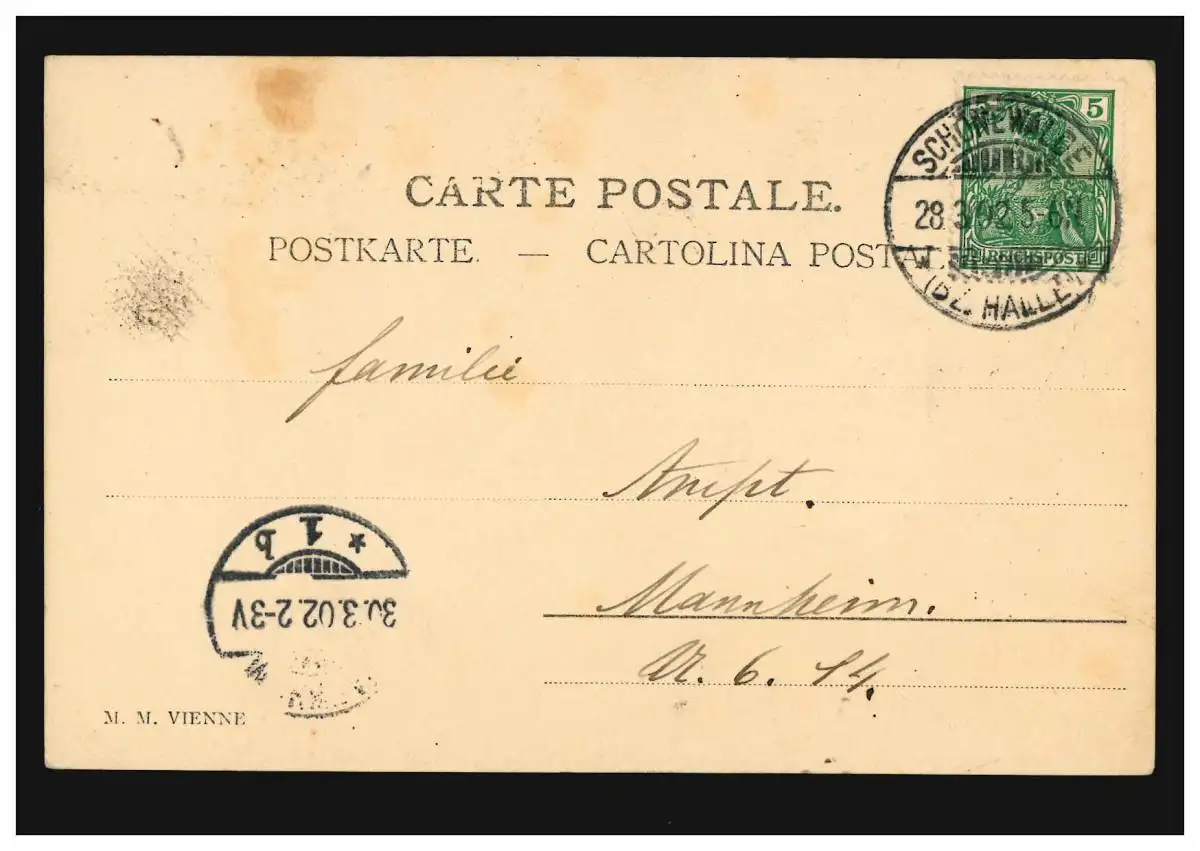 CARTE POSTALE.
POSTKARTE. — CARTOLINA POSTAL
5
REICHSPOST
SCHÖNEWALDE
28.3.02.5-6N
* (BZ. HALLE)
familie
Mannheim.
6. 14.
* 1 b
30.3.02.2-3V
M. M. VIENNE